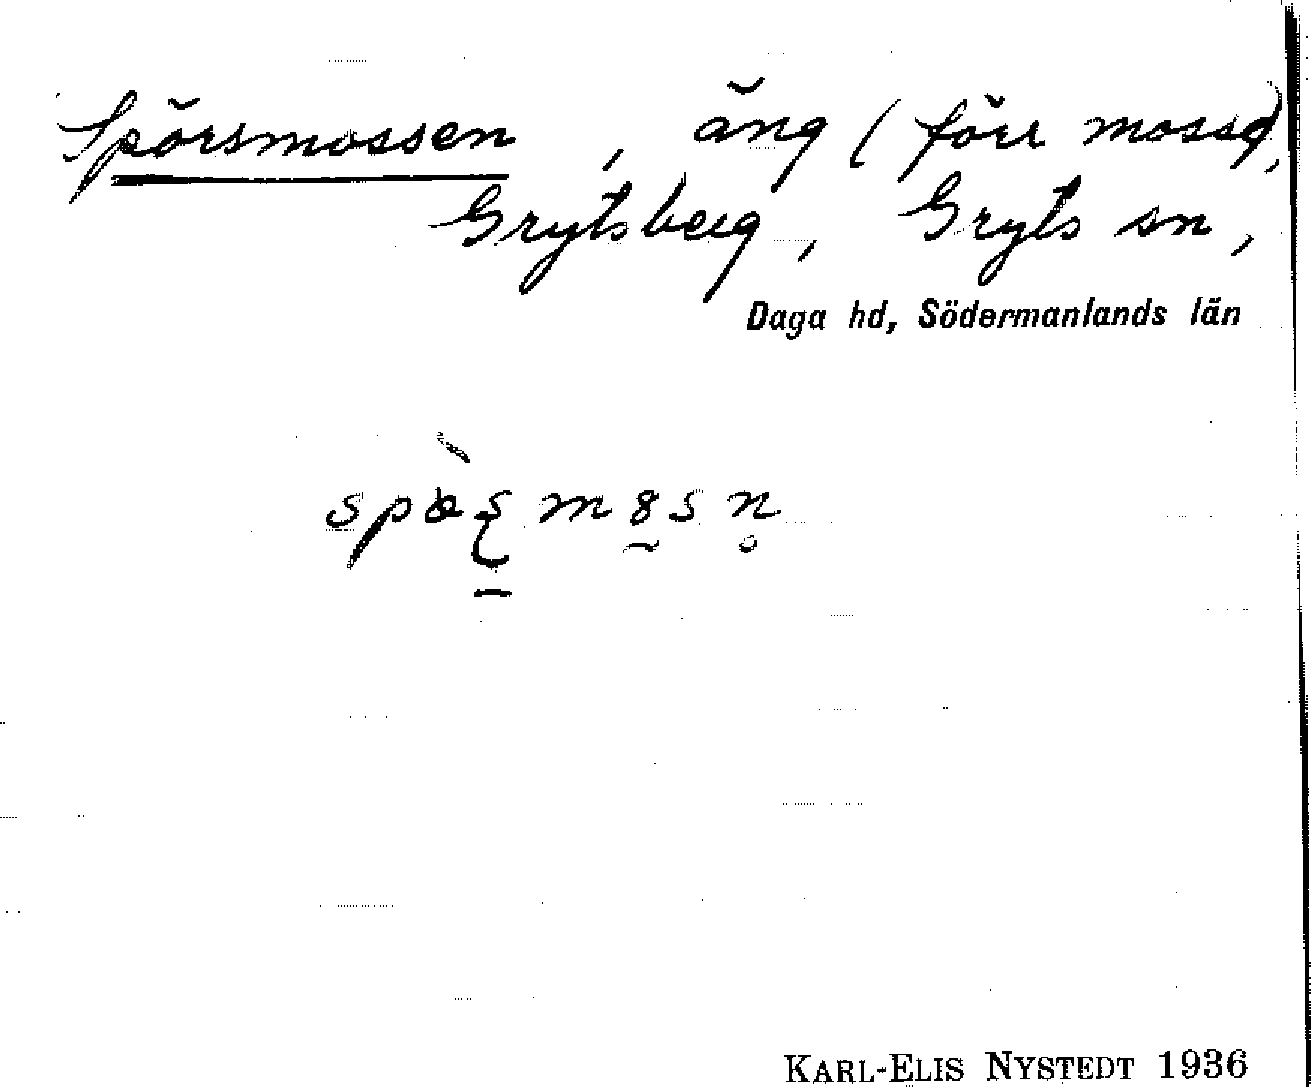 Spörsmossen, äng (förr mosse),
Grytsberg, Gryts sn,
Daga hd, Södermanlands län
KARL-ELIS NYSTEDT 1936